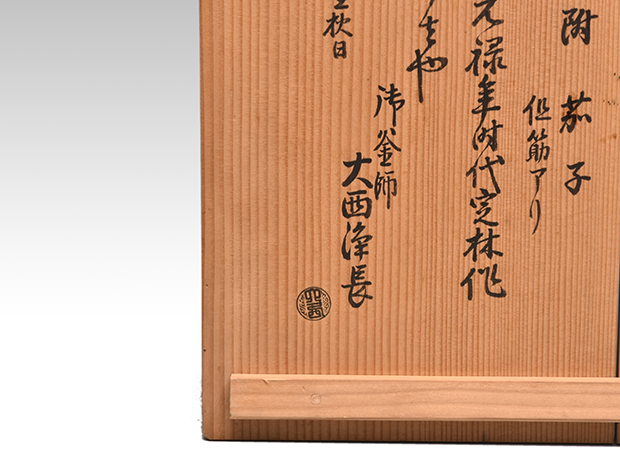 附 茄子
但筋アリ
元禄年時代定林作
也
御釜師
大西浄長
秋日